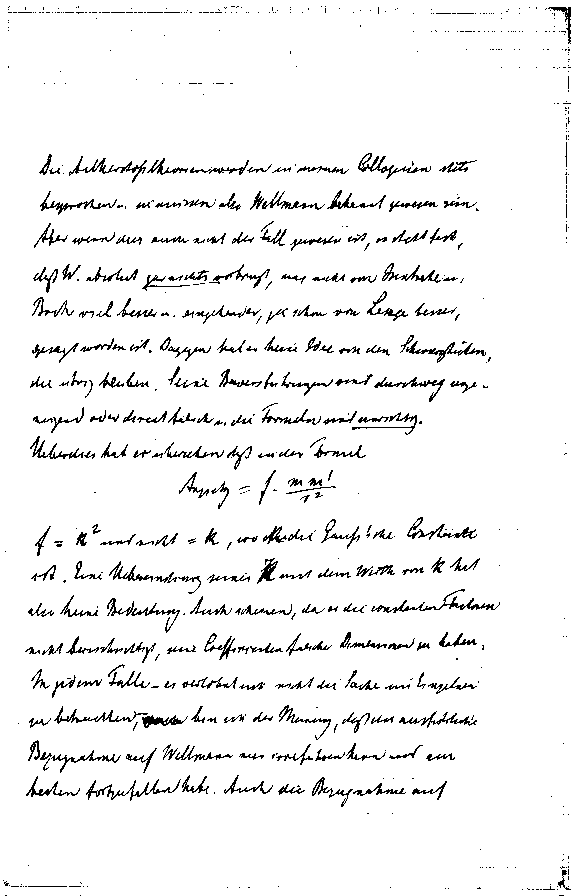 Die Aetherstosstheorien werden in meinen Colloquien stets
besprochen u. müssen also Wellmann bekannt gewesen sein.
Aber wenn dies auch nicht der Fall gewesen ist, so steht fest,
daß W. absolut gar nichts vorbringt, was nicht von u.
Bock viel besser u. eingehender, ja schon von Lesage besser,
gesagt worden ist. Dagegen hat er keine Idee von den Schwierigkeiten,
die übrig bleiben. Seine Beweisführungen sind durchweg unge-
nügend oder direct falsch u. die Formeln sind unrichtig.
Ueberdies hat er übersehen daß in der Formel
Anziehg = f · m m' / r²
f = k² und nicht = k, wo k die Gauß'sche Constante
ist. Eine seines K mit dem Werth von k hat
also keine Bedeutung. Auch scheinen, da er die constanten Factoren
nicht berücksichtigt, seine Coefficienten falsche Dimensionen zu haben.
In jedem Falle – es verlohnt sich nicht die Sache im Einzelnen
zu betrachten, – bin ich der Meinung, daß eine ausführliche
Bezugnahme auf Wellmann nur irreführen kann und am
besten fortzufallen habe. Auch die Bezugnahme auf